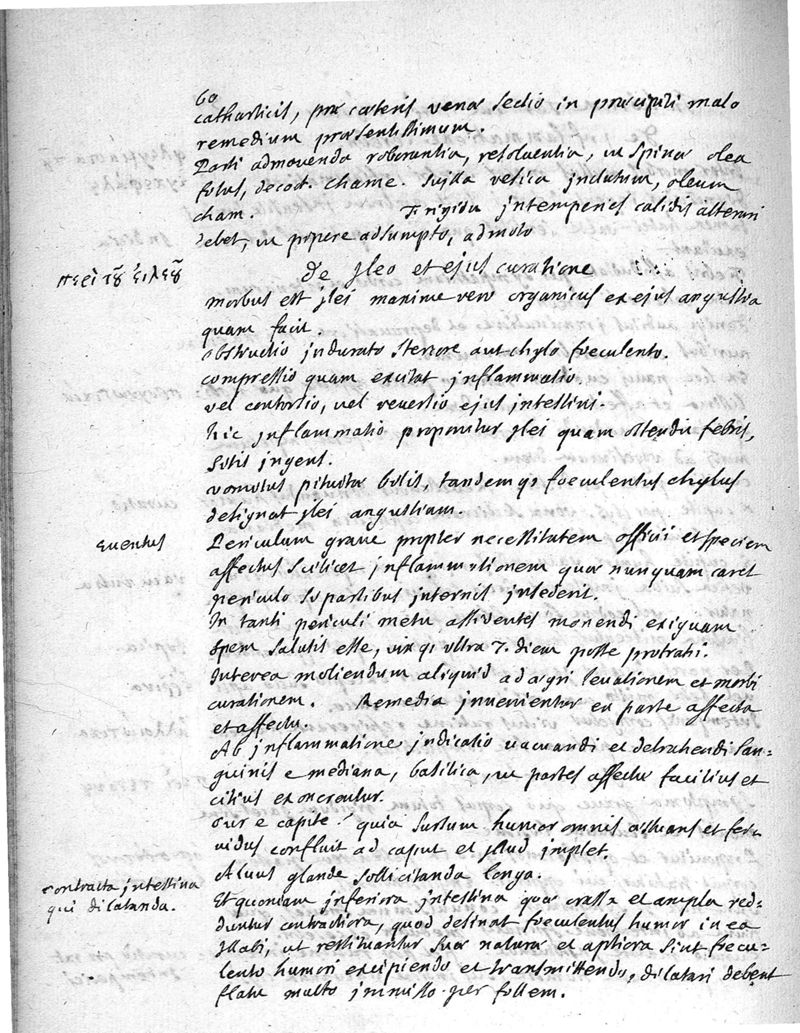 60
catharticis, præ cæteris venæ sectio in præcipiti malo
remedium præsentissimum.
Parti admovenda roborantia, resolventia, ut spinæ olea
fotus, decoct. chamę. supra vesica indutum, oleum
cham. Frigida intemperies calidis alterari
debet, ut pipere adsumpto, admoto
περὶ τȣ͂ εἰλεȣ͂
De Jleo et ejus curatione
morbus est jlei maxime vero organicus ex ejus angustia
quam facit.
obstructio jndurato stercore aut chylo fœculento.
compressio quam excitat jnflammatio.
vel contortio, vel eversio ejus jntestini.
hic jnflammatio proponitur jlei quam ostendit febris,
sitis jngens.
vomitus pituitæ bilis, tandem qȝ fœculentus chylus
designat jlei angustiam.
eventus
Periculum grave propter necessitatem officii et speciem
affectus scilicet jnflammationem quæ nunquam caret
periculo si partibus internis jnsederit.
In tanti periculi metu assidentes monendi exiguam
spem salutis esse, vix qȝ ultra 7. diem posse protrahi.
Interea moliendum aliquid ad ægri levationem et morbi
curationem. Remedia jnvenientur ex parte affecta
et affectu.
Ab jnflammatione jndicatio vacuandi et detrahendi san=
guinis e mediana, basilica, ut partes affectæ facilius et
citius exonerentur.
cur e capite? quia sursum humor omnis æstuans et fer=
vidus confluit ad caput et jllud jmplet.
Alvus glande sollicitanda longa.
contracta intestina
qui dilatanda.
Et quoniam inferiora jntestina quæ crassa et ampla red=
duntur contractiora, quod desinat fœculentus humor in ea
jllabi, ut restituantur suæ naturæ et aptiora sint fœcu=
lento humori excipiendo et transmittendo, dilatari debent
flatu multo jmmisso per follem.